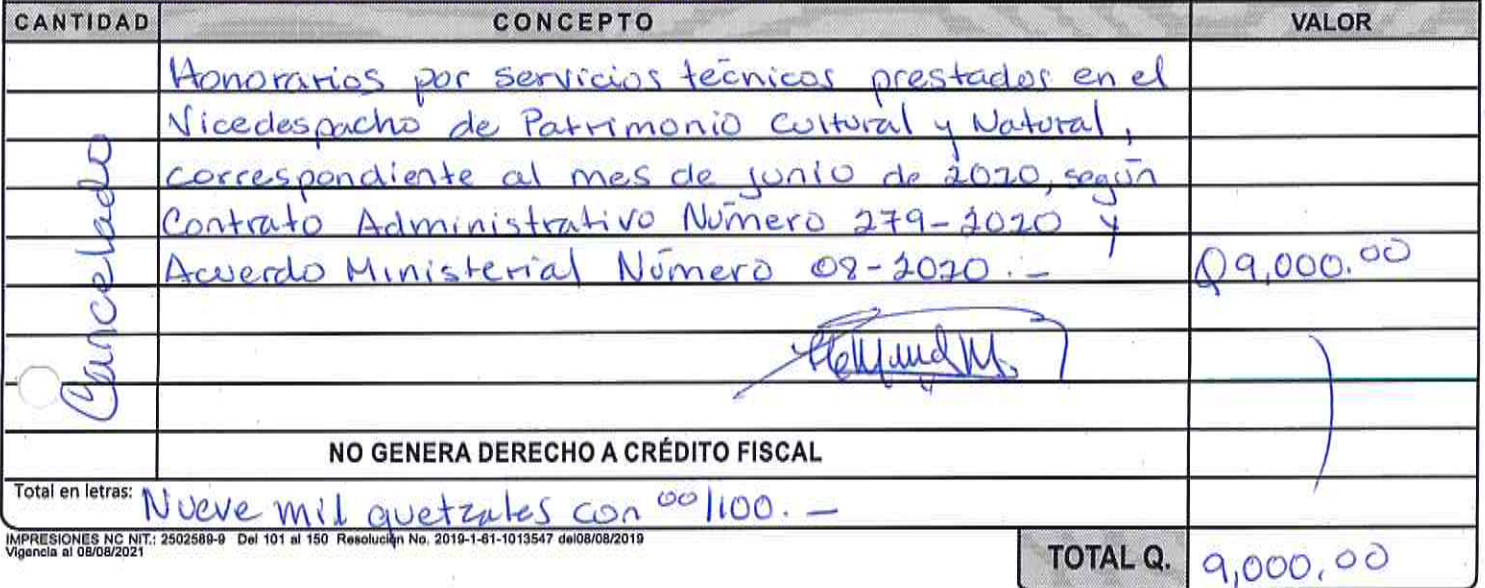 CANTIDAD CONCEPTO VALOR
Honorarios por servicios técnicos prestados en el
Vicedespacho de Patrimonio Cultural y Natural,
correspondiente al mes de junio de 2020, según
Contrato Administrativo Número 279-2020 y
Acuerdo Ministerial Número 08-2020.- Q9,000.00
Cancelado
NO GENERA DERECHO A CRÉDITO FISCAL
Total en letras: Nueve mil quetzales con 00/100.-
IMPRESIONES NC NIT.: 2502589-9 Del 101 al 150 Resolución No. 2019-1-61-1013547 del08/08/2019
Vigencia al 08/08/2021
TOTAL Q. 9,000.00